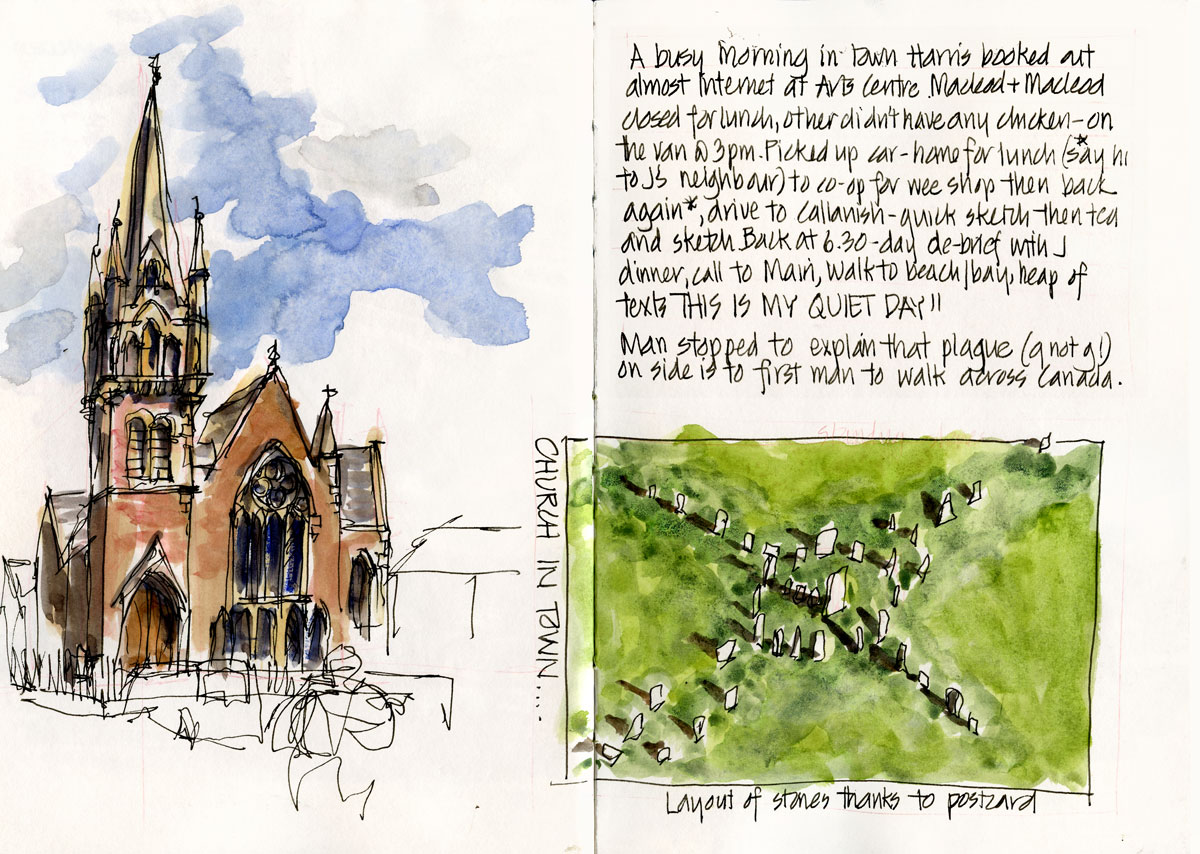 CHURCH IN TOWN....
A busy morning in town Harris booked out
almost Internet at Arts Centre. Macleod + Macleod
closed for lunch, other didn't have any chicken - on
the van @ 3pm. Picked up car - home for lunch (say hi
to J's neighbour) to co-op for wee shop then back
again*, drive to Callanish - quick sketch then tea
and sketch. Back at 6.30 - day de-brief with J
dinner, call to Mairi, walk to beach/bay, heap of
texts THIS IS MY QUIET DAY!!
Man stopped to explain that plaque (q not g!)
on side is to first man to walk across Canada.
Layout of stones thanks to postcard